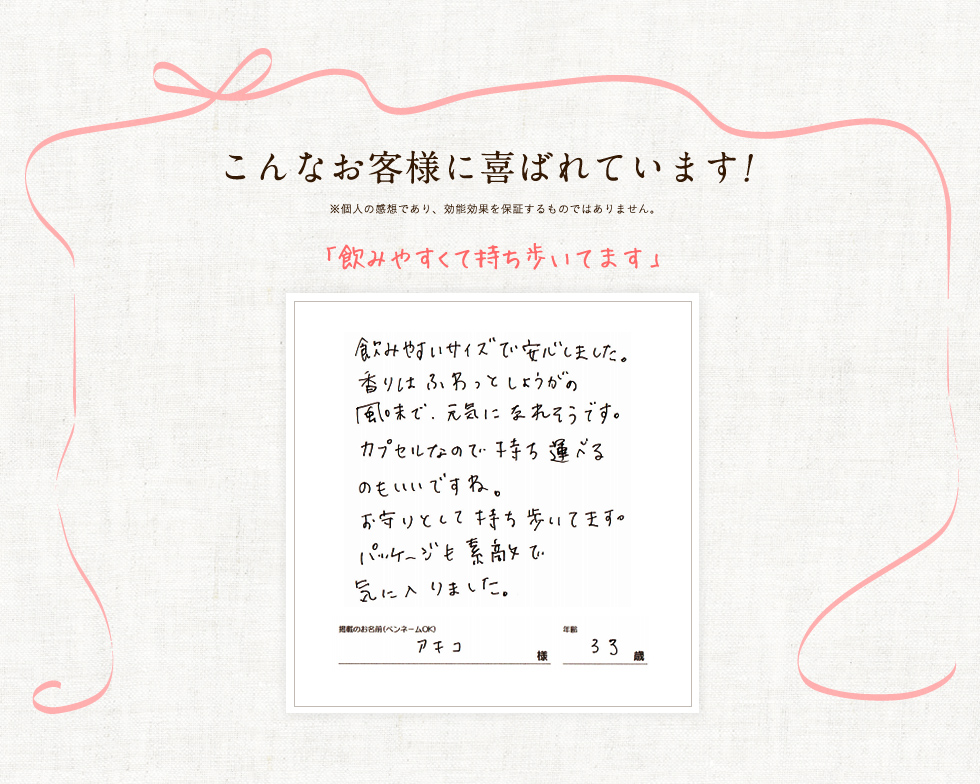 こんなお客様に喜ばれています!
※個人の感想であり、効能効果を保証するものではありません。
「飲みやすくて持ち歩いてます」
飲みやすいサイズで安心しました。
香りは ふわっとしょうがの
風味で、元気になれそうです。
カプセルなので 持ち運べる
のもいいですね。
お守りとして 持ち歩いてます。
パッケージも 素敵で
気に入りました。
掲載のお名前(ペンネームOK)
アキコ 様
年齢
33 歳